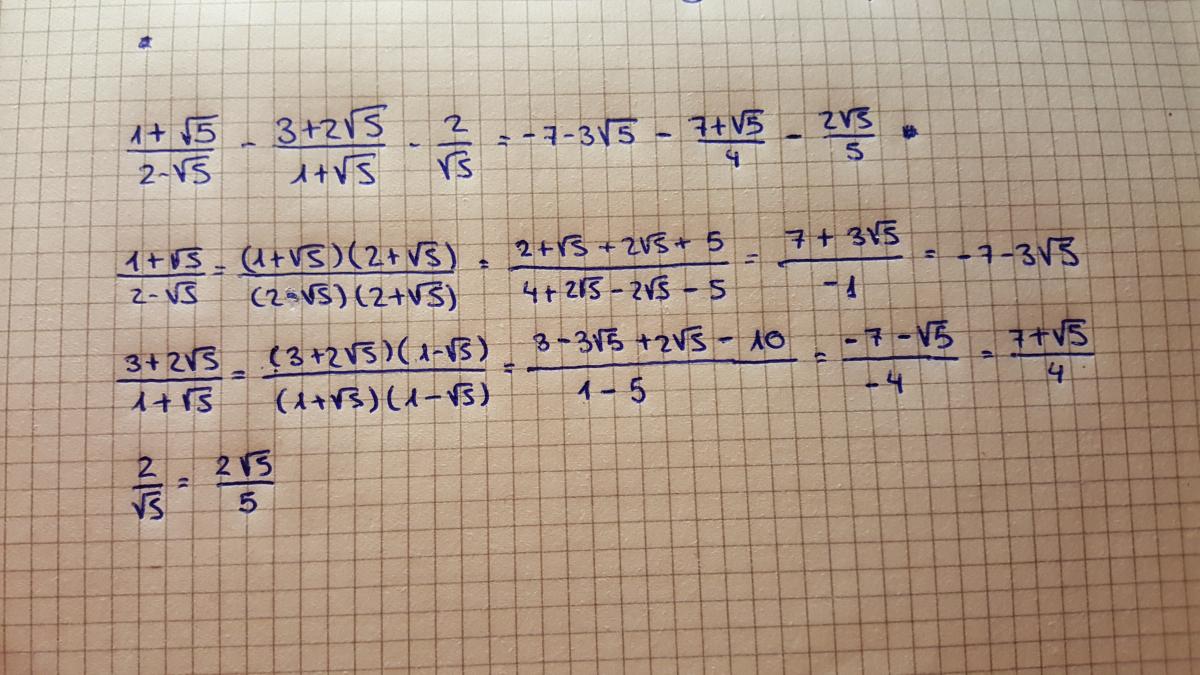 (1+√5)/(2-√5) - (3+2√5)/(1+√5) - 2/√5 = -7-3√5 - (7+√5)/4 - 2√5/5
(1+√5)/(2-√5) = ((1+√5)(2+√5))/((2-√5)(2+√5)) = (2+√5+2√5+5)/(4+2√5-2√5-5) = (7+3√5)/(-1) = -7-3√5
(3+2√5)/(1+√5) = ((3+2√5)(1-√5))/((1+√5)(1-√5)) = (3-3√5+2√5-10)/(1-5) = (-7-√5)/(-4) = (7+√5)/4
2/√5 = 2√5/5